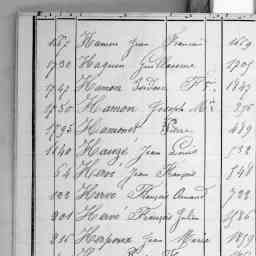 167 Hamon Jean François 1669
1730 Haguen Guillaume 1705
1747 Hamon Isidore F. 1847
1750 Hamon Joseph M. 256
1795 Hamonet Pierre 489
1840 Hauzé Jean Louis 532
54 Hervé Jean François 548
102 Hervé François Amand 722
201 Hervé François Julien 586
215 Herpoux Jean Marie 1859